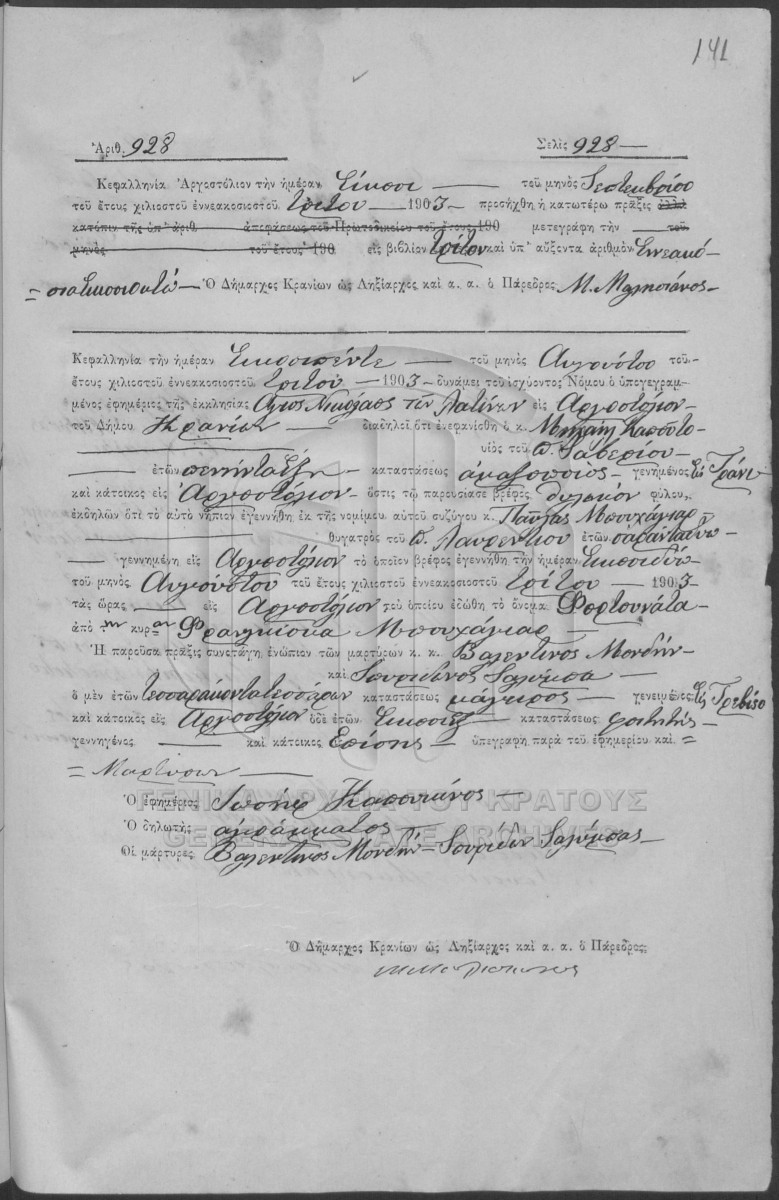 141
Ἀριθ. 928 Σελὶς 928 —
Κεφαλληνία Ἀργοστόλιον τὴν ἡμέραν Εἴκοσι — τοῦ μηνὸς Σεπτεμβρίου
τοῦ ἔτους χιλιοστοῦ ἐννεακοσιοστοῦ τρίτου — 1903 — προσήχθη ἡ κατωτέρω πρᾶξις ἀλλὰ
κατόπιν τῆς ὑπ' ἀριθ. ἀποφάσεως τοῦ Πρωτοδικείου τοῦ ἔτους 190 μετεγράφη τὴν — τοῦ
μηνὸς τοῦ ἔτους 190 εἰς βιβλίον τρίτον καὶ ὑπ' αὔξοντα ἀριθμὸν Ἐννεακό-
= σια εἰκοσιοκτώ — Ὁ Δήμαρχος Κρανίων ὡς Ληξίαρχος καὶ α. α. ὁ Πάρεδρος Μ.
Κεφαλληνία τὴν ἡμέραν Εἰκοσιπέντε — τοῦ μηνὸς Αὐγούστου τοῦ
ἔτους χιλιοστοῦ ἐννεακοσιοστοῦ τρίτου — 1903 — δυνάμει τοῦ ἰσχύοντος Νόμου ὁ ὑπογεγραμ-
μένος ἐφημέριος τῆς ἐκκλησίας Ἅγιος Νικόλαος τῶν Λατίνων εἰς Ἀργοστόλιον
τοῦ Δήμου Κρανίων — διαδηλοῖ ὅτι ἐνεφανίσθη ὁ κ. Μιχαὴλ
— υἱὸς τοῦ Π. Σαβερίου —
— ἐτῶν πενήντα ἕξη — καταστάσεως ἁμαξοποιὸς — γενημένος εἰς Τράνι
καὶ κάτοικος εἰς Ἀργοστόλιον — ὅστις τῷ παρουσίασε βρέφος θηλυκὸν φύλου,
ἐκδηλῶν ὅτι τὸ αὐτὸ νήπιον ἐγεννήθη ἐκ τῆς νομίμου αὐτοῦ συζύγου κ. Παύλας Μπουχάγιαρ —
— θυγατρὸς τοῦ Π. Λαυρεντίου ἐτῶν σαράντα δύω
— γεννημένη εἰς Ἀργοστόλιον τὸ ὁποῖον βρέφος ἐγεννήθη τὴν ἡμέραν Εἰκοσιδύω
τοῦ μηνὸς Αὐγούστου τοῦ ἔτους χιλιοστοῦ ἐννεακοσιοστοῦ τρίτου — 1903 —
τὰς ὥρας — εἰς Ἀργοστόλιον τοῦ ὁποίου ἐδώθη τὸ ὄνομα Φορτουνάτα —
ἀπὸ τὴν κυρίαν Φραγκίσκα Μπουχάγιαρ —
Ἡ παροῦσα πρᾶξις συνετάγη ἐνώπιον τῶν μαρτύρων κ. κ. Βαλεντῖνος Μονδὴν —
καὶ Σπυρίδωνος
ὁ μὲν ἐτῶν τεσσαράκοντα τεσσάρων καταστάσεως μάγειρος — γενειμένος εἰς Τρεβίζο
καὶ κάτοικος εἰς Ἀργοστόλιον ὁ δὲ ἐτῶν Εἰκοσιὲξ — καταστάσεως φοιτητὴς —
γεννηγένος — καὶ κάτοικος Ἐπίσης — ὑπεγράφη παρὰ τοῦ ἐφημερίου καὶ =
= Μαρτύρων —
Ὁ ἐφημέριος Ἰωσὴφ
Ὁ δηλωτὴς ἀγράμματος —
Οἱ μάρτυρες Βαλεντῖνος Μονδὴν — Σπυρίδων
ΓΕΝΙΚΑ ΑΡΧΕΙΑ ΤΟΥ ΚΡΑΤΟΥΣ
GENERAL STATE ARCHIVES
Ὁ Δήμαρχος Κρανίων ὡς Ληξίαρχος καὶ α. α. ὁ Πάρεδρος;